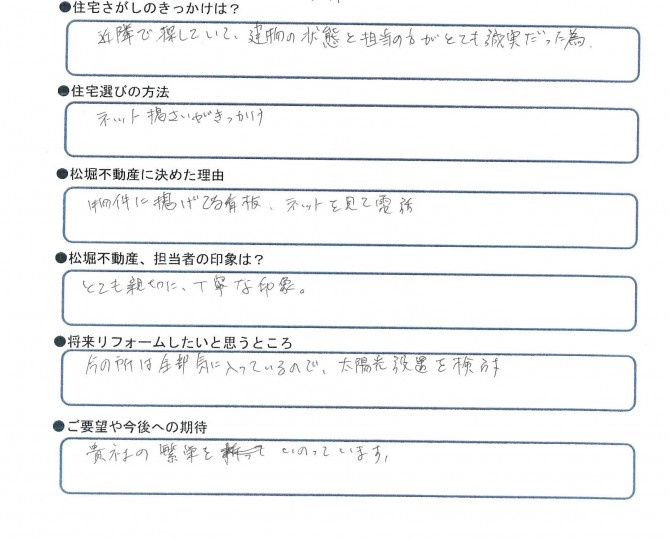 ●住宅さがしのきっかけは？
近隣で探していて、建物の状態と担当の方がとても誠実だった為、
●住宅選びの方法
ネット掲さいがきっかけ
●松堀不動産に決めた理由
物件に掲げてる看板、ネットを見て電話
●松堀不動産、担当者の印象は？
とても親切に、丁寧な印象。
●将来リフォームしたいと思うところ
今の所は全部気に入っているので、太陽光設置を検討す
●ご要望や今後への期待
貴社の繁栄を いのっています。